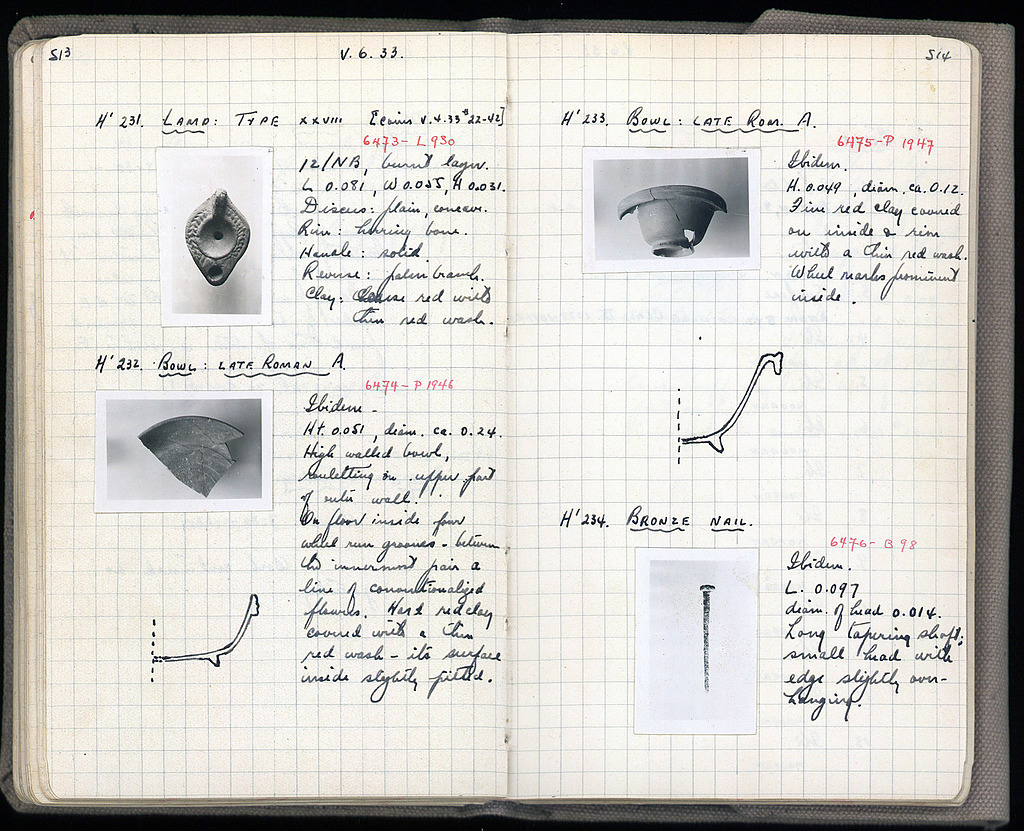 513
V. 6. 33.
H' 231. LAMP: TYPE XXVIII [Coins V.4.33 #22-42]
6473 - L 930
12/NB, burnt layer.
L 0.081, W 0.055, H 0.031.
Discus: plain, concave.
Rim: herring bone.
Handle: solid.
Reverse: palm branch.
Clay: coarse red with
thin red wash.
H' 232. BOWL: LATE ROMAN A.
6474 - P 1946
Ibidem.
Ht. 0.051, diam. ca. 0.24.
High walled bowl,
rouletting on upper part
of outer wall.
On floor inside four
wheel run grooves - between
the innermost pair a
line of conventionalized
flowers. Hard red clay
covered with a thin
red wash - its surface
inside slightly pitted.
514
H' 233. BOWL: LATE ROM. A.
6475 - P 1947
Ibidem.
H. 0.049, diam. ca. 0.12.
Fine red clay covered
on inside & rim
with a thin red wash.
Wheel marks prominent
inside.
H' 234. BRONZE NAIL.
6476 - B 98
Ibidem.
L. 0.097
diam. of head 0.014.
Long tapering shaft;
small head with
edge slightly over-
hanging.